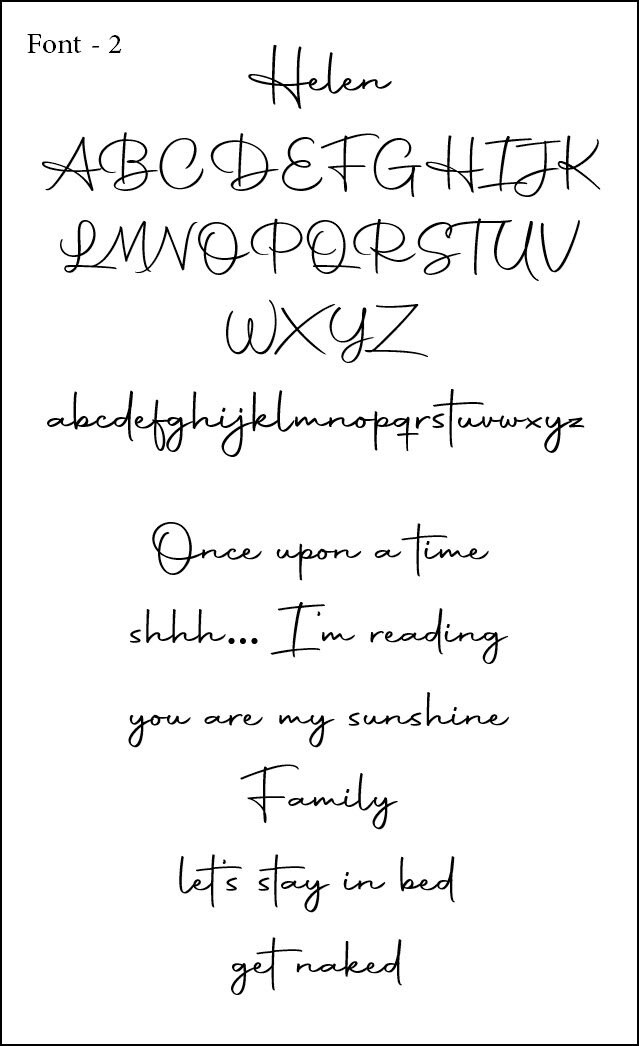 Font - 2
Helen
ABCDEFGHIJK
LMNOPQRSTUV
WXYZ
abcdefghijklmnopqrstuvwxyz
Once upon a time
shhh... I'm reading
you are my sunshine
Family
let's stay in bed
get naked